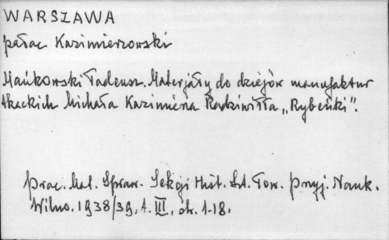 WARSZAWA
pałac Kazimierzowski
Mańkowski Tadeusz. Materjały do dziejów manufaktur
tkackich Michała Kazimierza Radziwiłła „Rybeńki".
Prac. Mat. Spraw. Sekcji Hist. Szt. Tow. Przyj. Nauk.
Wilno. 1938/39, t. III, str. 1-18.